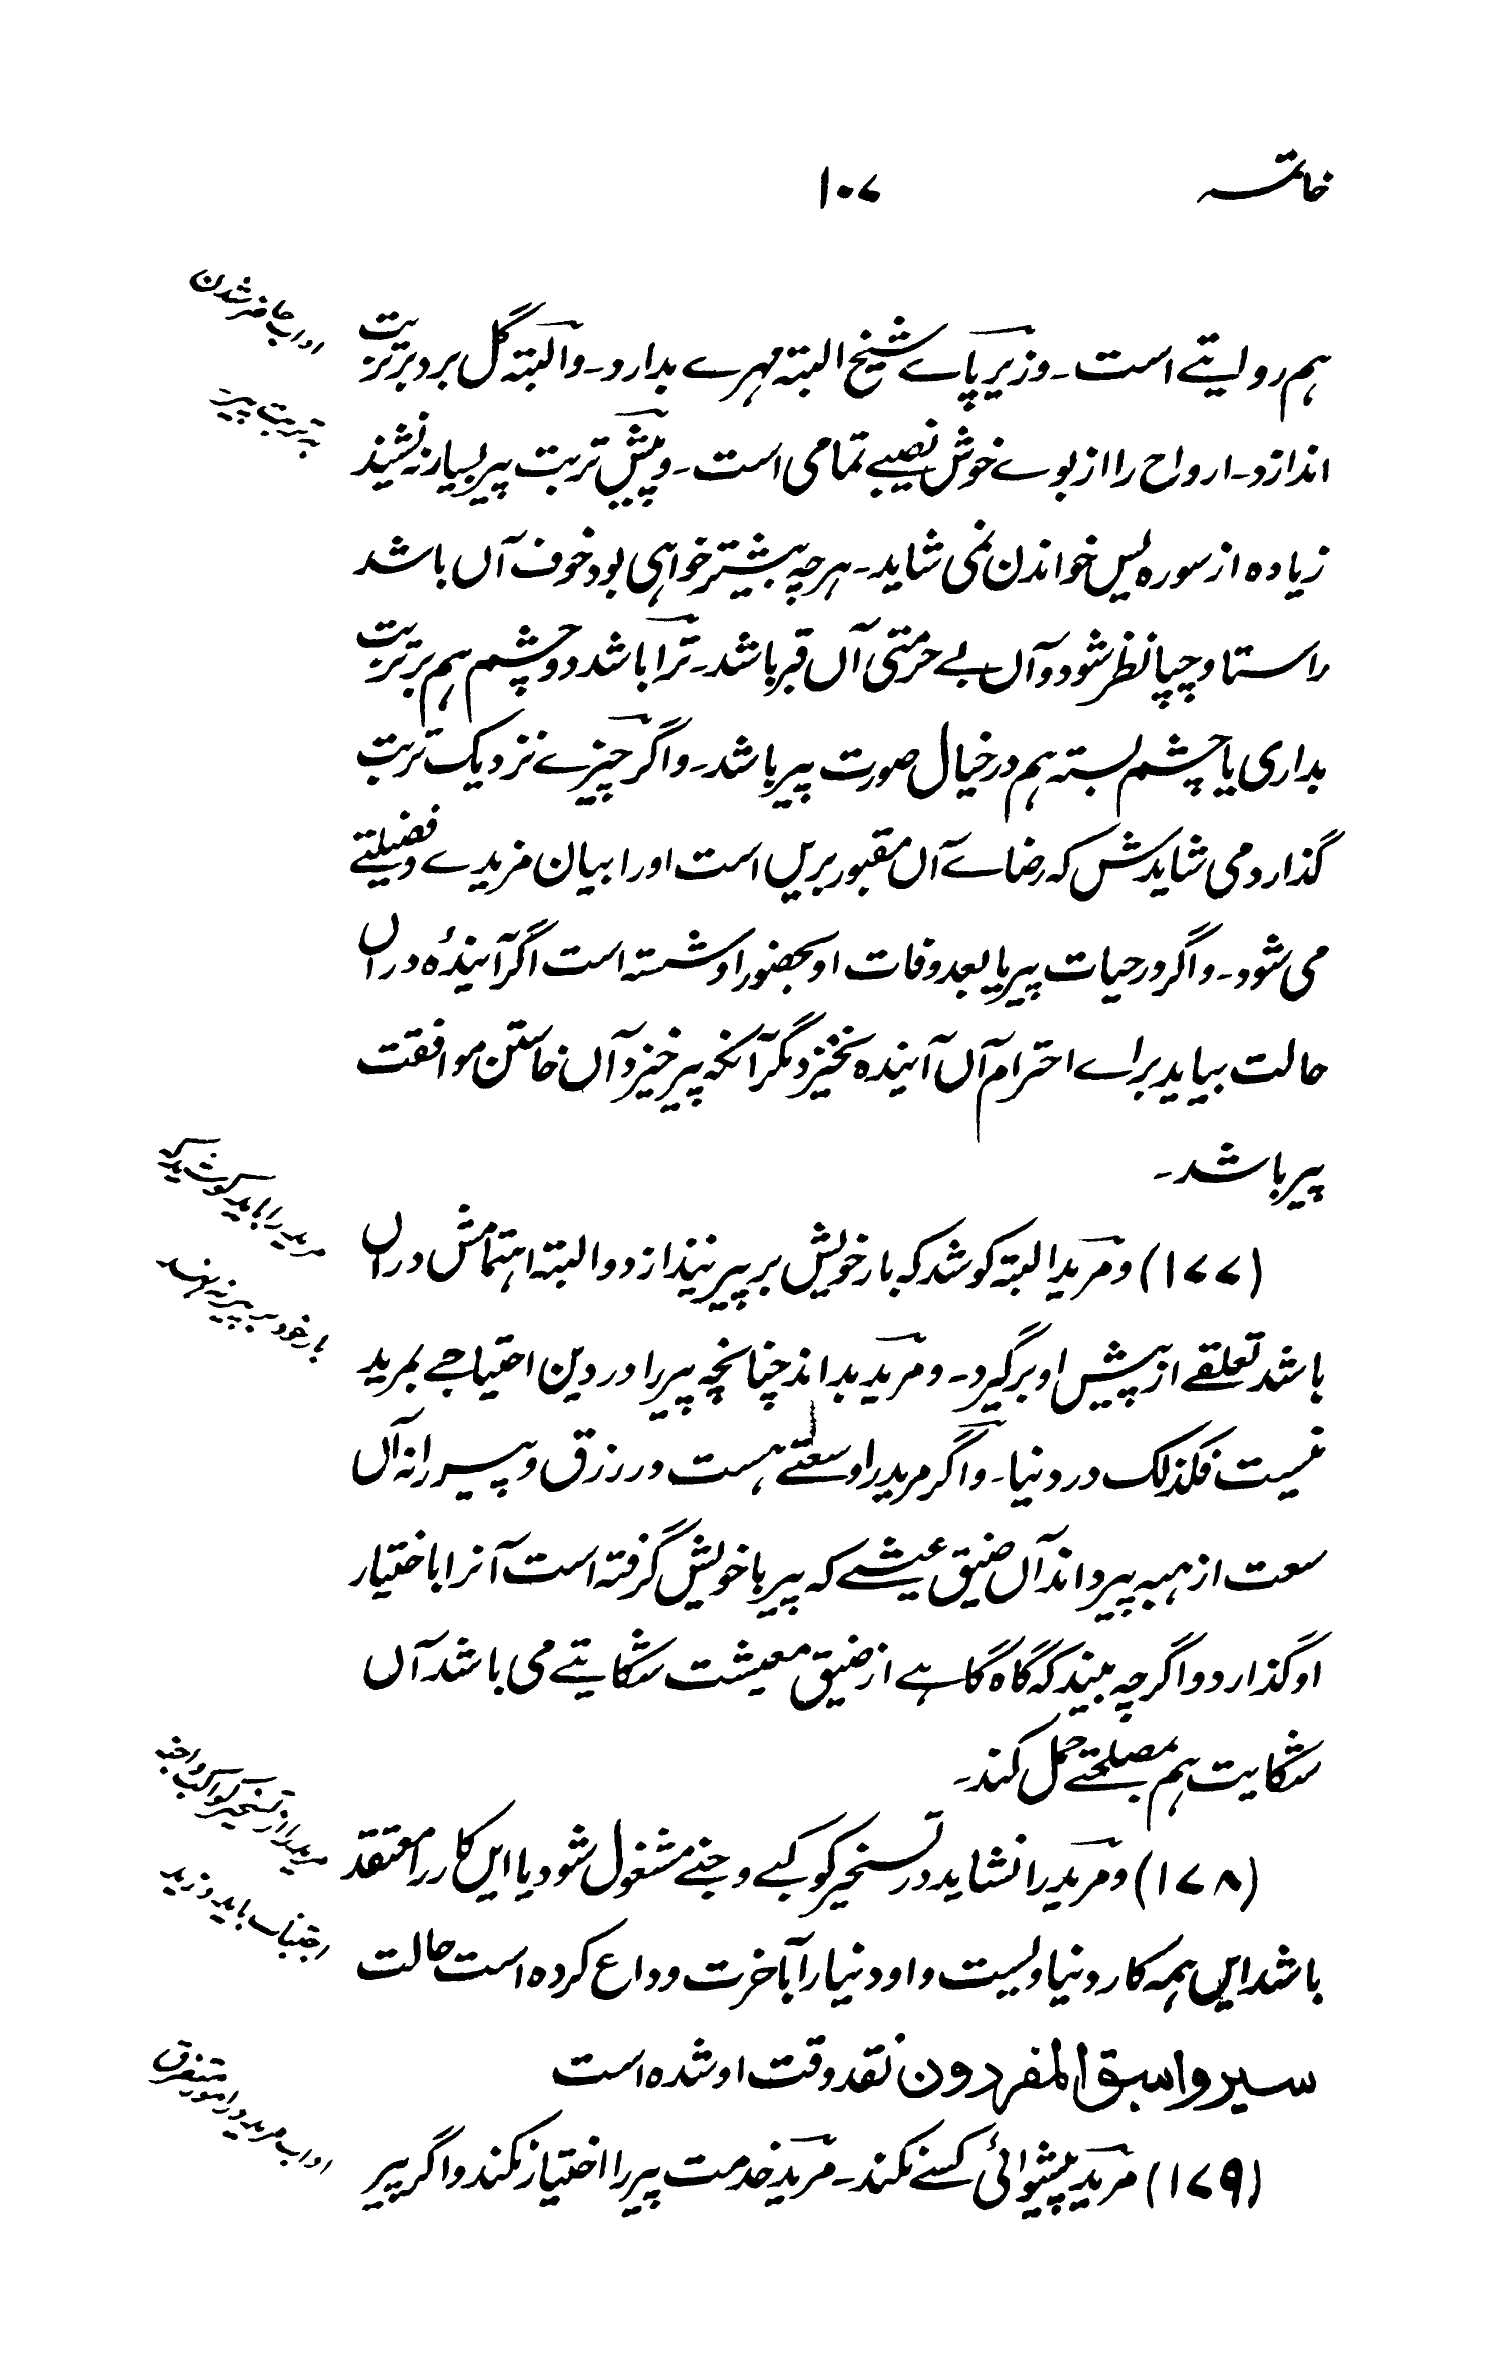 خاتمہ
۱۰۷
آداب حاضر شدن
بہ تربت پیر۔
ہم روایتے است۔ وزیر پاے شیخ البتہ مہرے بدارد۔ والبتہ گل برد بر تربت
اندازد۔ ارواح را از بوے خوش نصیبے تمامی است۔ وپیش تربت پیر بسیار نہ نشیند
زیادہ از سورہ یٰس خواندن نمی شاید۔ ہرچہ بیشتر خواہی بود خوف آں باشد
راستا وچپا نظر شود وآں بے حرمتی آں قبر باشد۔ ترا باشد دو چشم ہم بر تربت
بداری یا چشم بستہ ہم در خیال صورت پیر باشد۔ واگر چیزے نزدیک تربت
گذارد می شایدش کہ رضاے آں مقبور بریں است اورا بیان مزیدے وفضیلتے
می شود۔ واگر در حیات پیر یا بعد وفات او بحضور او نشستہ است اگر آیندۂ دراں
حالت بیاید براے احترام آں آیندہ نخیزد مگر آنکہ پیر خیزد وآں خاستن موافقت
پیر باشد۔
مرید را باید کوشید کہ
بار خود بر پیر نہ نہد
(۱۷۷) ومرید البتہ کوشد کہ بار خویش بر پیر نیندازد والبتہ اہتمامش دراں
باشد تعلقے از پیش او برگیرد۔ ومرید بداند چنانچہ پیر را در دین احتیاجے بمرید
نیست فکذلک در دنیا۔ واگر مرید را وسعتے ہست در رزق وپیر را نہ آں
سعت از ہبہ پیر داند آں ضیق عیشے کہ پیر با خویش گرفتہ است آنرا باختیار
او گذارد واگرچہ بیند کہ گاہ گاہے از ضیق معیشت شکایتے می باشد آں
شکایت ہم بمصلحتے حمل کند۔
مرید را از تسخیر کواکب واجنہ
اجتناب باید ورزید
(۱۷۸) ومرید را نشاید در تسخیر کوکبے وجنے مشغول شود یا ایں کار را معتقد
باشد ایں ہمہ کار دنیاویست واو دنیا را بآخرت وداع کردہ است حالت
سیروا سبق المفردون نقد وقت او شدہ است
آداب مرید در امور متفرق
(۱۷۹) مرید پیشوائی کسے نکند۔ مرید خدمت پیر را اختیار نکند واگر پیر